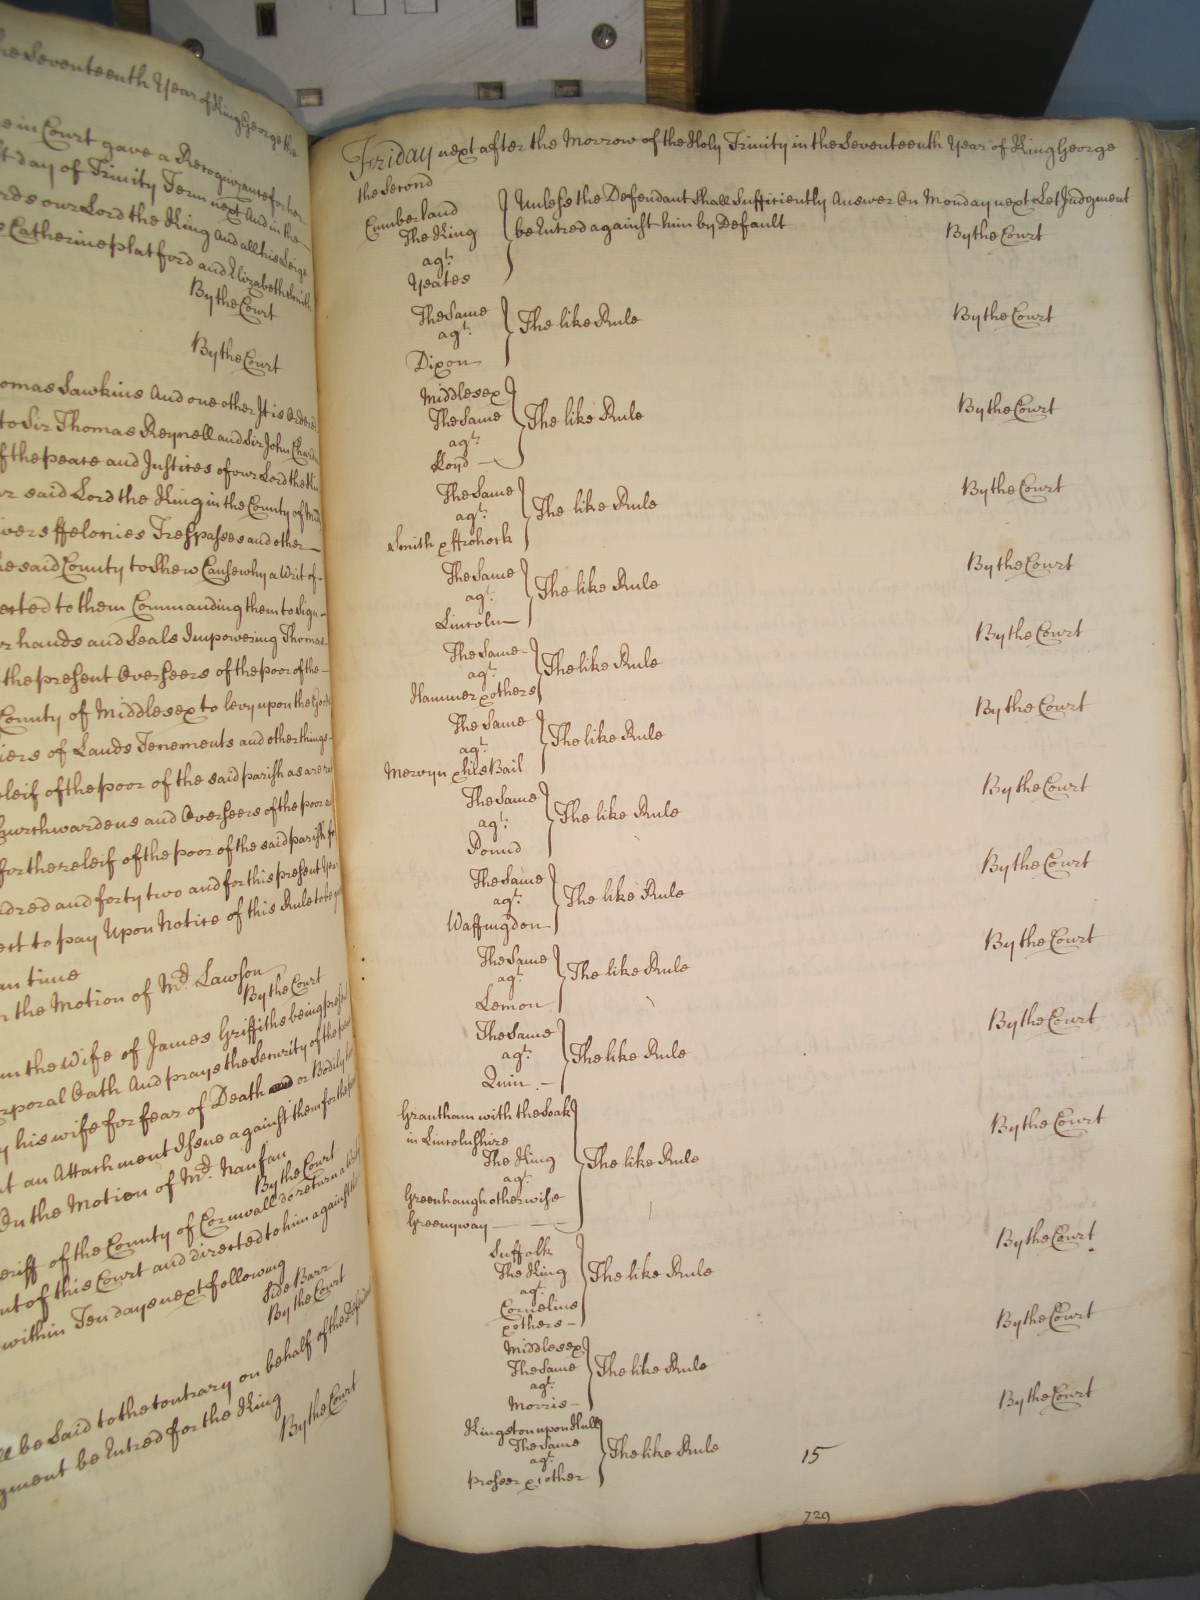 he Seventeenth Year of King George the
e in Court gave a Recognizance for her
st day of Trinity Term next And in the
rds our Lord the King and all his Leige
e Catherine platford and Elizabeth Smith
By the Court
By the Court
omas Sawkins And one other It is Ordered
to Sir Thomas Reynell and Sir John
f the peace and Justices of our Lord the
ur said Lord the King in the County of Mid
ivers ffelonies Trespasses and other
he said County to Shew Cause why a Writ of
ected to them Commanding them to Sign
r hands and Seals Impowering Thomas
the present Overseers of the poor of the
County of Middlesex to levy upon the
iers of Lands Tenements and other things
eleif of the poor of the said parish as are
hurchwardens and Overseers of the poor
for the releif of the poor of the said parish
ndred and forty two and for this present
ect to pay Upon Notice of this Rule to be
an time
n the Motion of Mr. Lawson
By the Court
the Wife of James Griffiths being
rporal Oath And prays the Security of the
y his wife for fear of Death or Bodily
t an Attachment Issue against them for the
On the Motion of Mr. Nanfan
By the Court
eriff of the County of Cornwall do return
ut of this Court and directed to him against
within Ten days next following
Side Barr
By the Court
ll be Said to the contrary on behalf of the
gment be Entred for the King
By the Court
Friday next after the Morrow of the Holy Trinity in the Seventeenth Year of King George
the Second
Cumberland
The King
agt.
Yeates
Unless the Defendant Shall Sufficiently Answer On Monday next Let Judgment
be Entred against him by Default
By the Court
The Same
agt.
Dixon
The like Rule
By the Court
Middlesex
The Same
agt.
Lloyd
The like Rule
By the Court
The Same
agt.
Smith &
The like Rule
By the Court
The Same
agt.
Lincoln
The like Rule
By the Court
The Same
agt.
Hammer & others
The like Rule
By the Court
The Same
agt.
Mervyn & his Bail
The like Rule
By the Court
The Same
agt.
Pound
The like Rule
By the Court
The Same
agt.
Waffingdon
The like Rule
By the Court
The Same
agt.
Lemon
The like Rule
By the Court
The Same
agt.
Quin
The like Rule
By the Court
Grantham with the Soak
in Lincolnshire
The King
agt.
Greenhaugh otherwise
Greenyway
The like Rule
By the Court
Suffolk
The King
agt.
Cornelius
& others
The like Rule
By the Court
Middlesex
The Same
agt.
Morris
The like Rule
By the Court
Kingston upon Hull
The Same
agt.
Prosser & other
The like Rule
By the Court
15
729